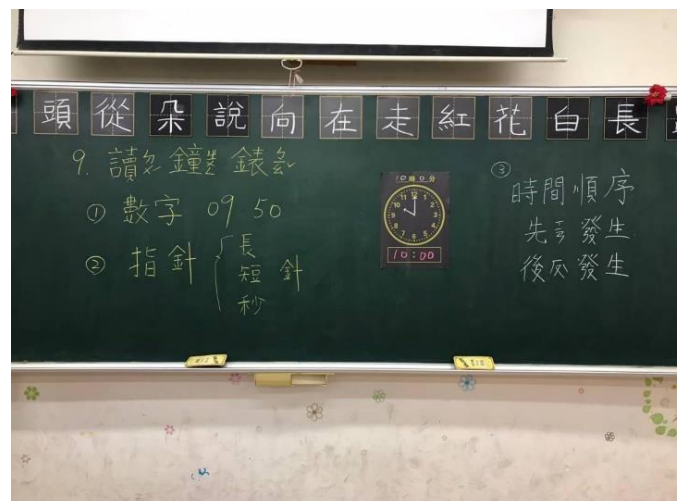 頭從朵說向在走紅花白長
9. 讀ㄉㄨˊ鐘ㄓㄨㄥ錶ㄅㄧㄠˇ
① 數字 09:50
② 指針 長 短 秒 針
10時0分
11 12 1
10 2
9 3
8 4
7 6 5
10:00
③
時間順序
先ㄒㄧㄢ發生
後ㄏㄡˋ發生